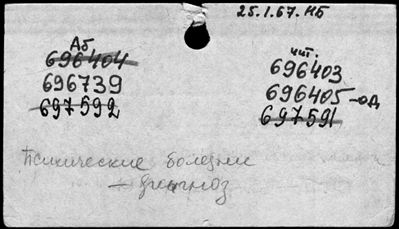 25.I.67. НБ
Аб
696404
696739
697592
чит.
696403
696405-од
697591
Психические болезни
— диагноз